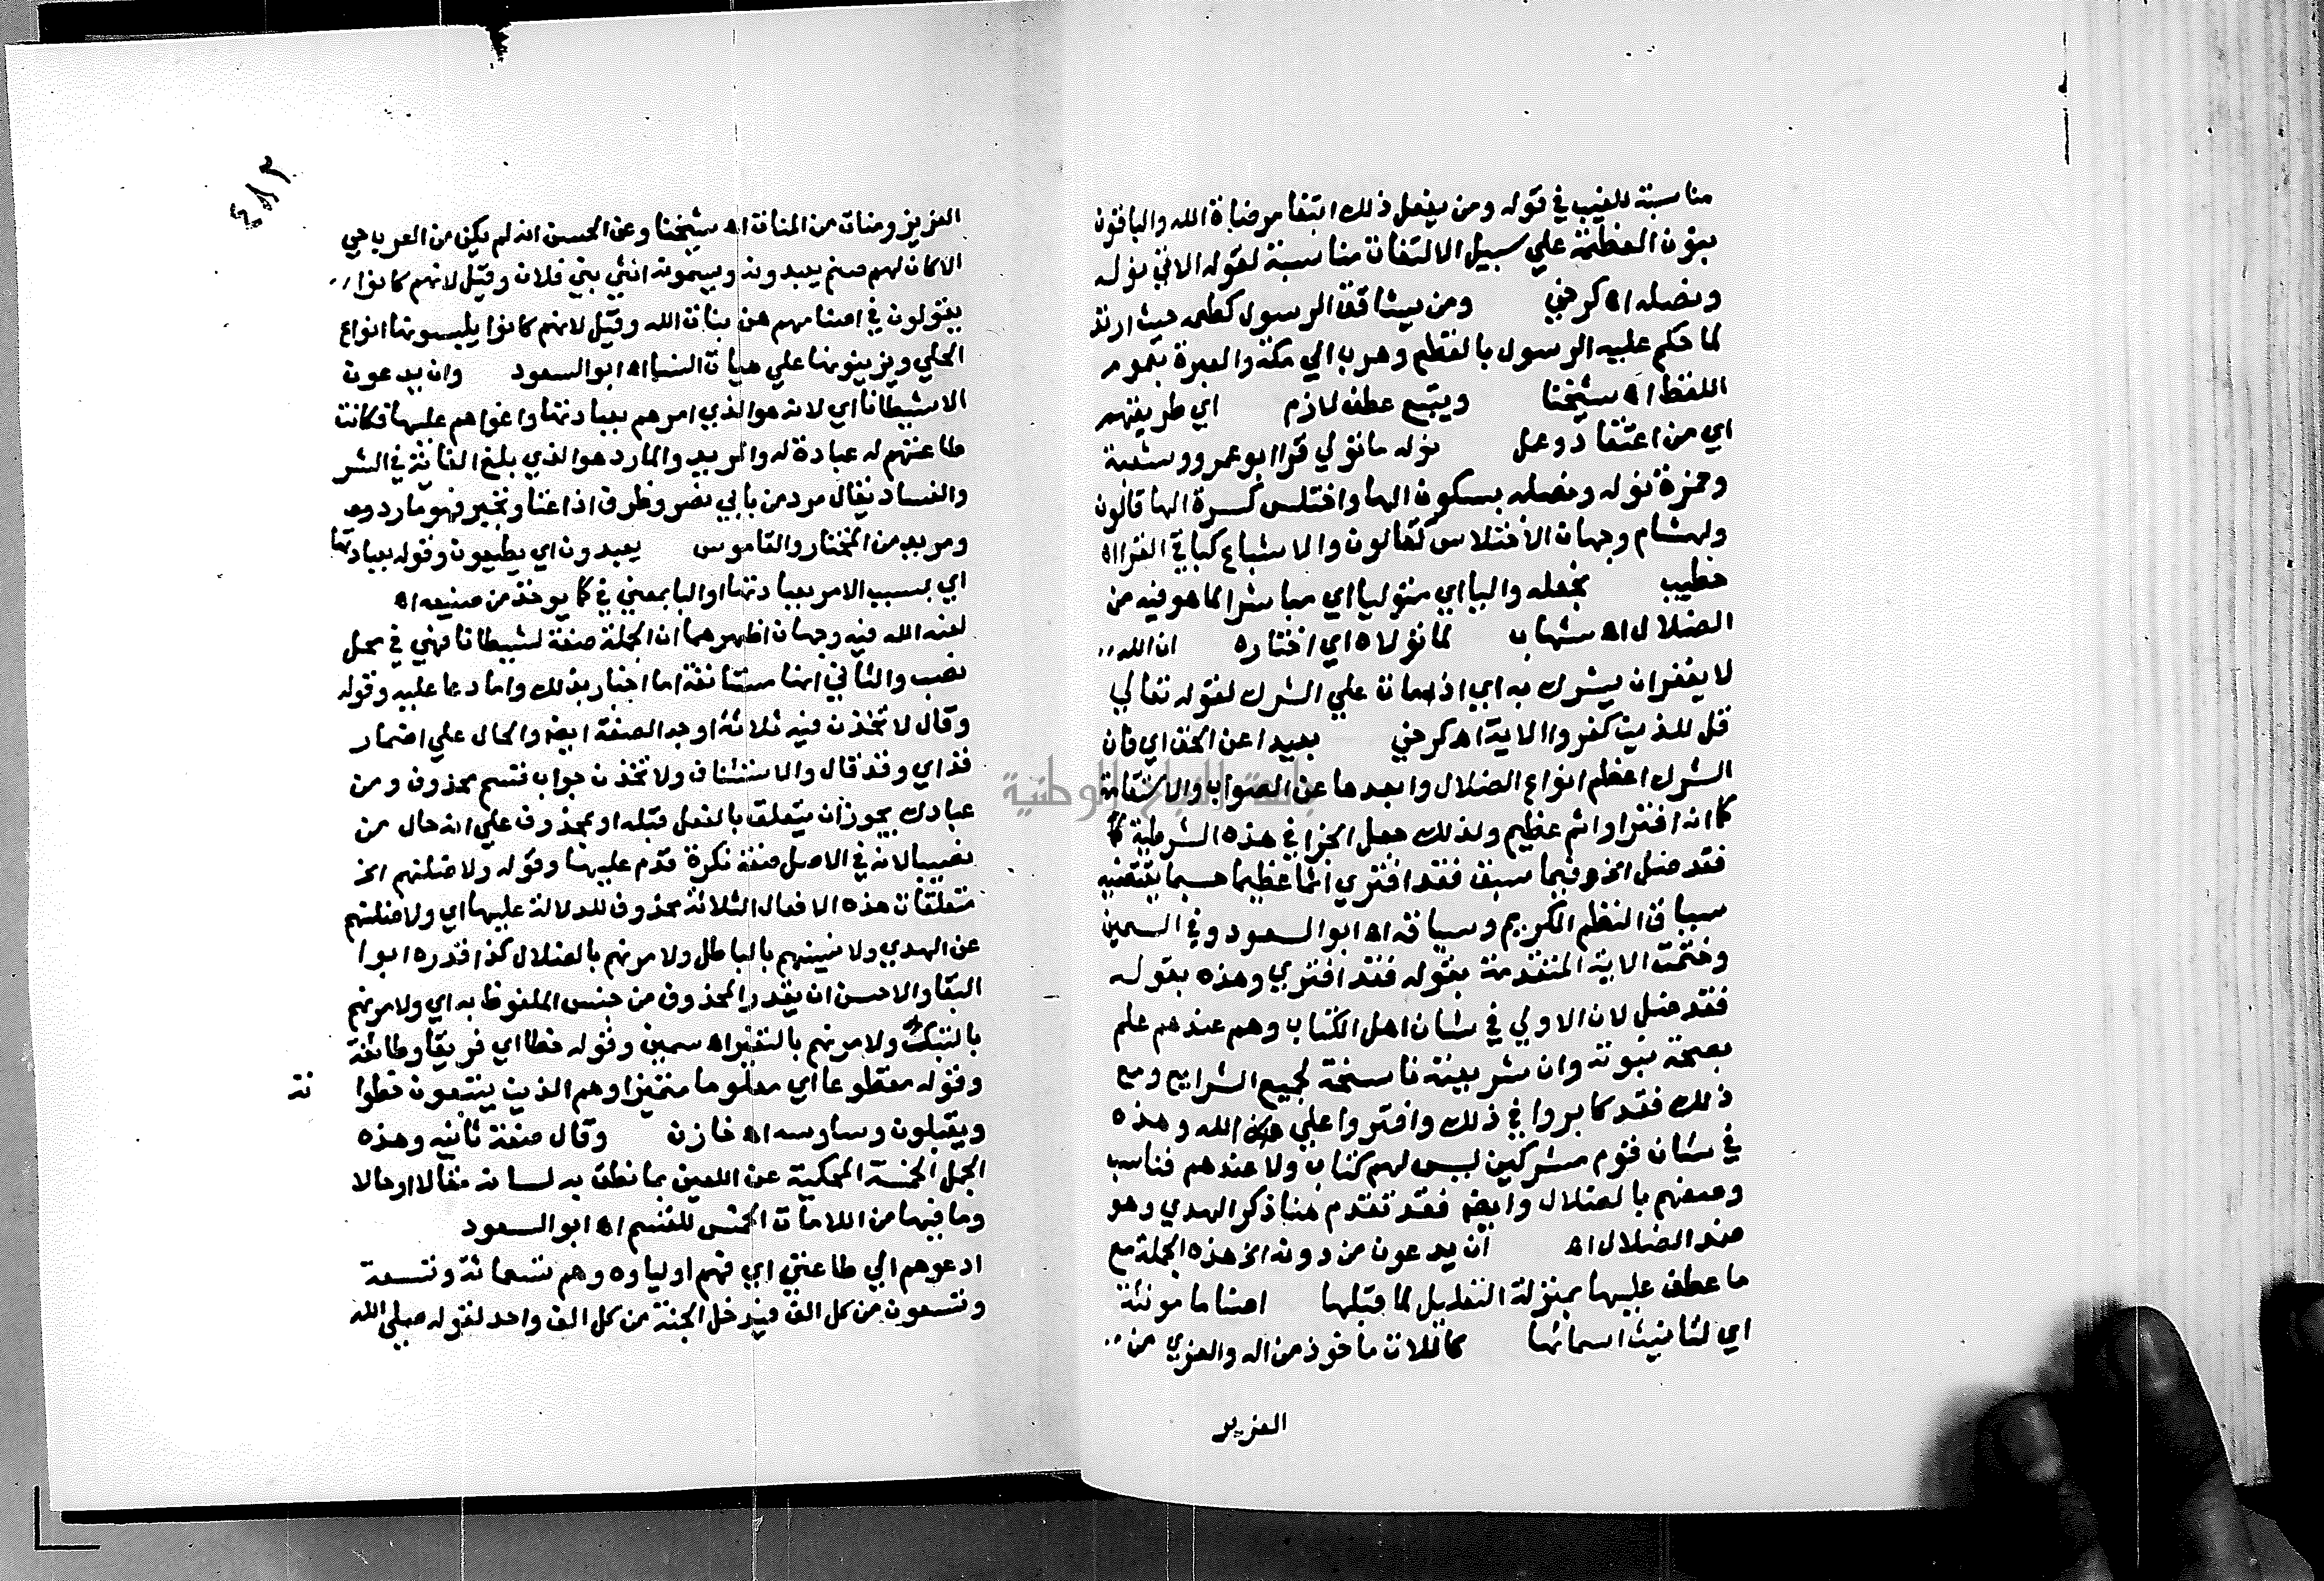 مناسبة للغيب في قوله ومن يفعل ذلك ابتغا مرضاة الله والباقون
بنون العظمة علي سبيل الالتفات مناسبة لقوله الاتي نوله
ونصله اه كرخي ومن يشاقق الرسول كطعمه حيث ارتد
لما حكم عليه الرسول بالقطع وهرب الي مكة والعبرة بعموم
اللفظ اه شيخنا ويتبع عطف لازم اي طريقهم
اي من اعتقاد وعمل نوله ما تولي قرا ابو عمرو وشعبة
وحمزة نوله ونصله بسكون الها واختلس كسرة الها قالون
ولهشام وجهان الاختلاس كقالون والاشباع كباقي القرا اه
خطيب نجعله واليا اي متوليا اي مباشرا لما هو فيه من
الضلال اه شهاب لما تولاه اي اختاره ان الله
لا يغفر ان يشرك به اي اذا مات علي الشرك لقوله تعالي
قل للذين كفروا الاية اه كرخي بعيدا عن الحق اي فان
الشرك اعظم انواع الضلال وابعدها عن الصواب والاستقامة
كما انه افترا واثم عظيم ولذلك جعل الجزا في هذه الشرطية
فقد ضل الخ وفيما سبق فقد افتري اثما عظيما حسبما يقتضيه
سباق النظم الكريم وسياقه اه ابو السعود وفي السمين
وختمت الاية المتقدمة بقوله فقد افتري وهذه بقوله
فقد ضل لان الاولي في شان اهل الكتاب وهم عندهم علم
بصحة نبوته وان شريعته ناسخة لجميع الشرايع ومع
ذلك فقد كابروا في ذلك وافتروا علي الله وهذه
في شان قوم مشركين ليس لهم كتاب ولا عندهم فناسب
وصفهم بالضلال وايضا فقد تقدم هنا ذكر الهدي وهو
ضد الضلال اه ان يدعون من دونه الخ هذه الجملة مع
ما عطف عليها بمنزلة التعليل لما قبلها اصناما مونثة
اي لتانيث اسمائها كاللات ماخوذ من اله والعزي من
العزيز
٤٨٣
العزيز ومنات من المنات اه شيخنا وعن الحسن انه لم يكن من العرب حي
الا كان لهم صنم يعبدونه ويسمونه انثي بني فلان وقيل لانهم كانوا
يقولون في اصنامهم هن بنات الله وقيل لانهم كانوا يلبسونها انواع
الحلي ويزينونها علي هيات النسا اه ابو السعود وان يدعون
الا شيطانا اي لانه هو الذي امرهم بعبادتها واغواهم عليها فكانت
طاعتهم له عبادة له والمريد والمارد هو الذي بلغ الغاية في الشر
والفساد يقال مرد من بابي نصر وظرف اذا عتا وتجبر فهو مارد
ومريد من المختار والقاموس يعبدون اي يطيعون وقوله بعبادتها
اي بسبب الامر بعبادتها او البا بمعني في كما يوخذ من صنيعه اه
لعنه الله فيه وجهان اظهرهما ان الجملة صفة لشيطانا فهي في محل
نصب والثاني انها مستانفة اما اخبار بذلك واما دعا عليه وقوله
وقال لاتخذن فيه ثلاثة اوجه الصفة ايضا والحال علي اضمار
قد اي وقد قال والاستئناف ولاتخذن جواب قسم محذوف ومن
عبادك يجوز ان يتعلق بالفعل قبله او بمحذوف علي انه حال من
نصيبا لانه في الاصل صفة نكرة قدم عليها وقوله ولاضلنهم الخ
متعلقات هذه الافعال الثلاثة محذوف للدلالة عليها اي ولاضلنهم
عن الهدي ولامنينهم بالباطل ولامرنهم بالضلال كذا قدره ابوا
البقا والاحسن ان يقدر المحذوف من جنس الملفوظ به اي ولامرنهم
بالتبتك ولامرنهم بالتغيير اه سمين وقوله حظا اي فريقا وطائفة
وقوله مقطوعا اي معلوما متميزا وهم الذين يتبعون خطوا ته
ويقبلون وساوسه اه خازن وقال صفة ثانيه وهذه
الجمل الخمسة المحكية عن اللعين مما نطق به لسانه مقالا او حالا
وما فيها من اللامات الخمس للقسم اه ابو السعود
ادعوهم الي طاعتي اي فهم اولياوه وهم تسعمائة وتسعة
وتسعون من كل الف فيدخل الجنة من كل الف واحد لقوله صلي الله